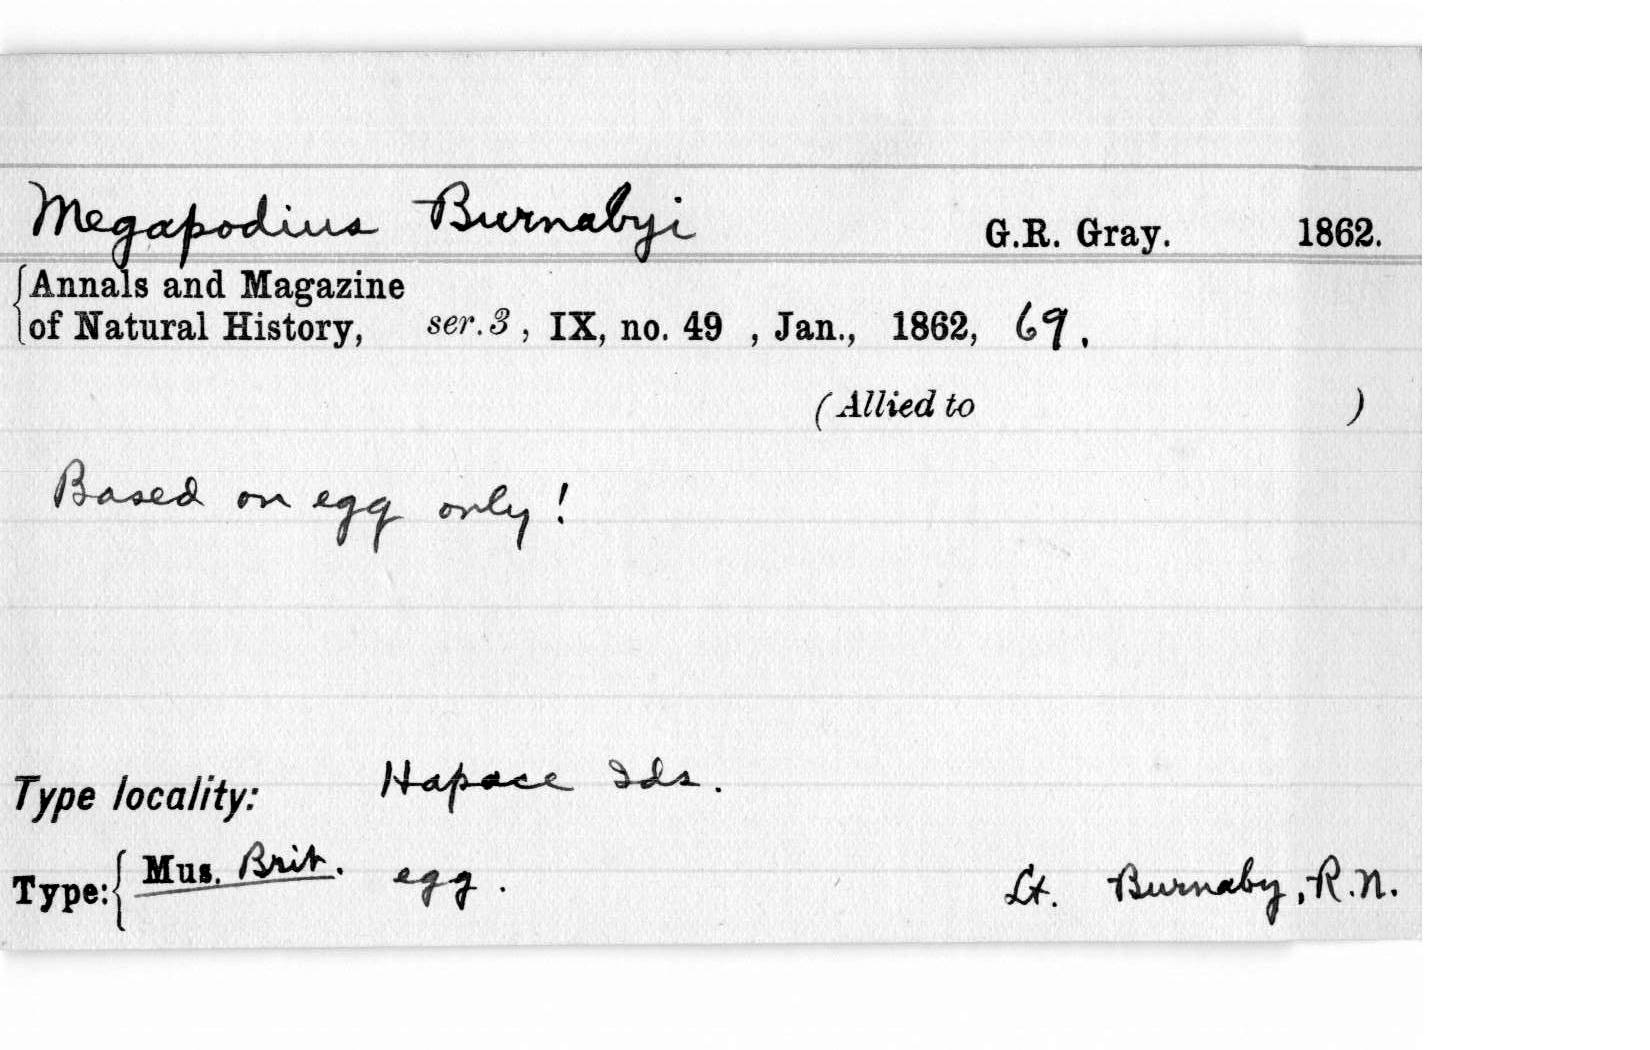 Megapodius Burnabyi G.R. Gray. 1862.
Annals and Magazine
of Natural History, ser. 3, IX, no. 49, Jan., 1862, 69.
(Allied to )
Based on egg only!
Type locality: Hapace Ids.
Type: Mus. Brit. egg. Lt. Burnaby, R.N.